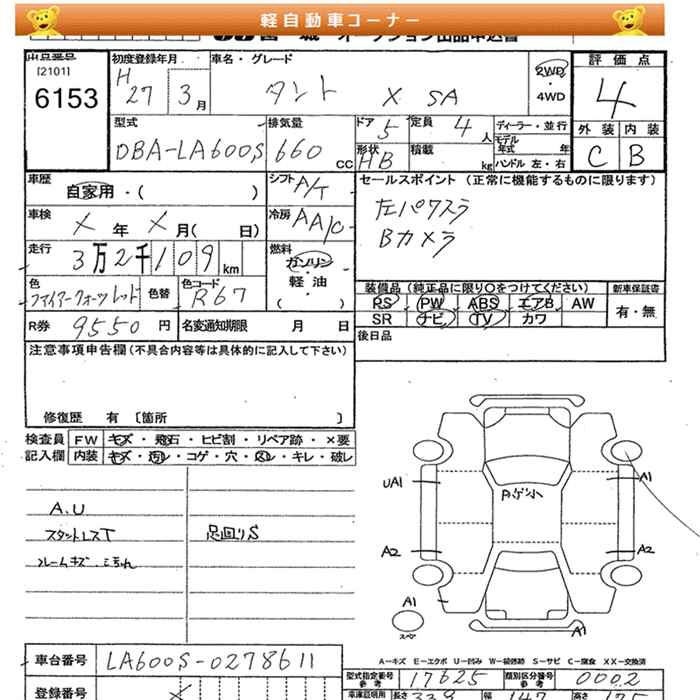 軽自動車コーナー
出品番号
[2101]
6153
初度登録年月
H
27 3月
車名・グレード
タント X SA
2WD
4WD
評価点
4
外装 内装
C B
型式
DBA-LA600S
排気量
660 CC
ドア 5
定員 4人
形状
HB
積載 kg
ディーラー・並行
モデル年式 年
ハンドル 左・右
車歴
自家用・( )
シフト A/T
車検
X年 X月( 日)
冷房 AA/C
走行
3万2千109km
燃料
ガソリン
・
軽・油
( )
色
ファイアークォーツレッド
色替
色コード
R67
R券 9550円
名変通知期限 月 日
セールスポイント(正常に機能するものに限ります)
左パワスラ
Bカメラ
装備品(純正品に限り〇をつけてください)
PS PW ABS エアB AW
SR ナビ TV カワ
新車保証書
有・無
後日品
注意事項申告欄(不具合内容等は具体的に記入して下さい)
修復歴 有 〔箇所 〕
検査員
記入欄
FW キズ・飛石・ヒビ割・リペア跡・×要
内装 キズ・汚れ・コゲ・穴・スレ・キレ・破レ
A.U
スタントレスT
足回りS
UA1
A1
A2
A2
A1
スペア
A1
A-キズ E-エクボ U-凹み W-補修跡 S-サビ C-腐食 XX-交換済
車台番号 LA600S-0278611
型式指定番号
参考
17625
類別区分番号
参考
0002
登録番号 X
長さ
幅
高さ